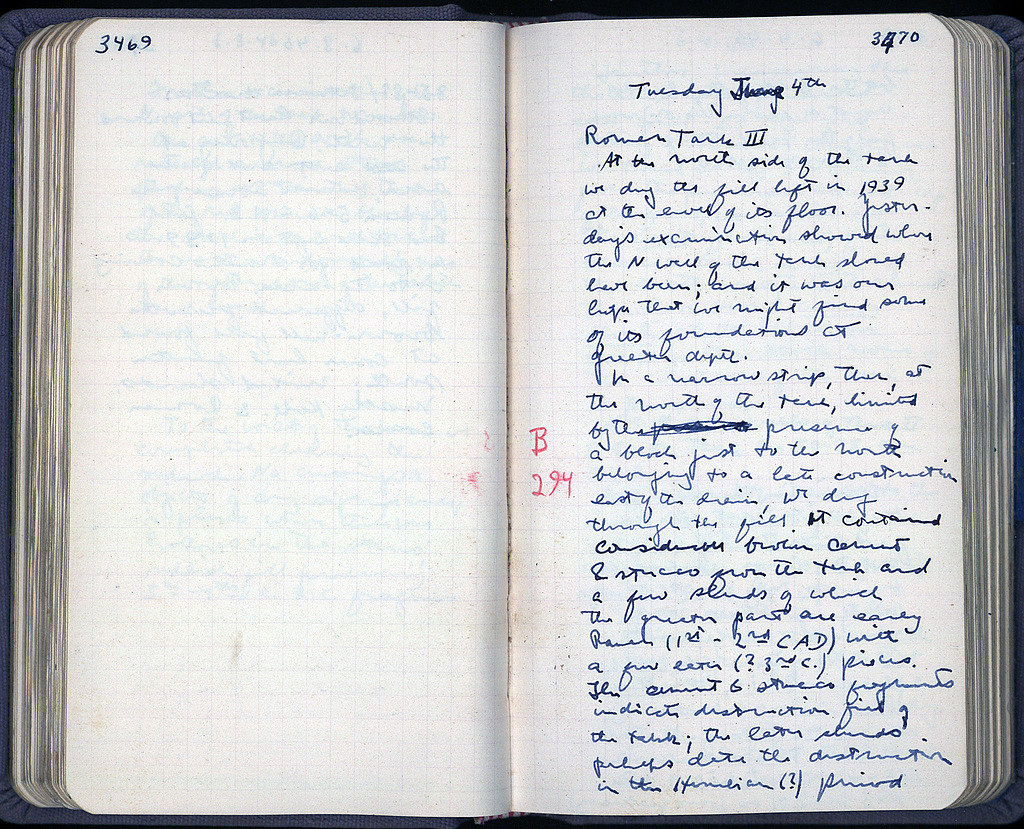 3469
3470
Tuesday 4th
Roman Tank III
At the north side of the tank
we dug the fill left in 1939
at the level of its floor. Yester-
day's examination showed where
the N wall of the tank should
have been; and it was our
hope that we might find some
of its foundations at
greater depth.
In a narrow strip, then, at
the north of the tank, limited
by the presence of
B
a block just to the north
294
belonging to a late construction
east of the drain, we dug
through the fill. It contained
considerable broken cement
& stucco from the tank and
a few sherds of which
the greater part are early
Roman (1st - 2nd C AD) with
a few later (? 3rd C.) pieces.
The cement & stucco fragments
indicate destruction fill of
the tank; the later sherds
perhaps date the destruction
in the Herulian (?) period